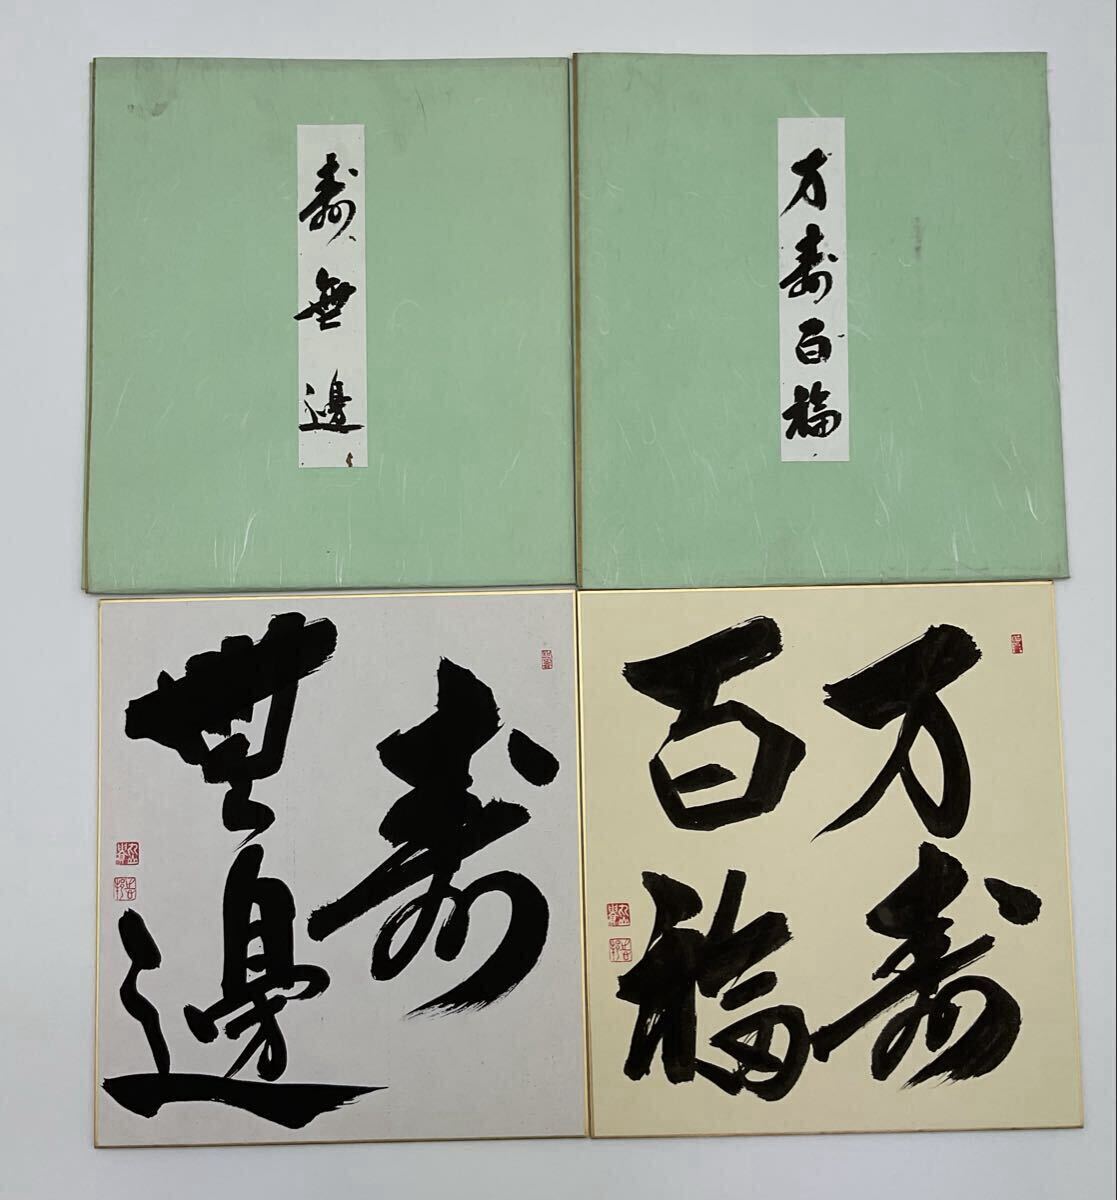 寿無邊
万寿百福
寿
無邊
万寿
百福